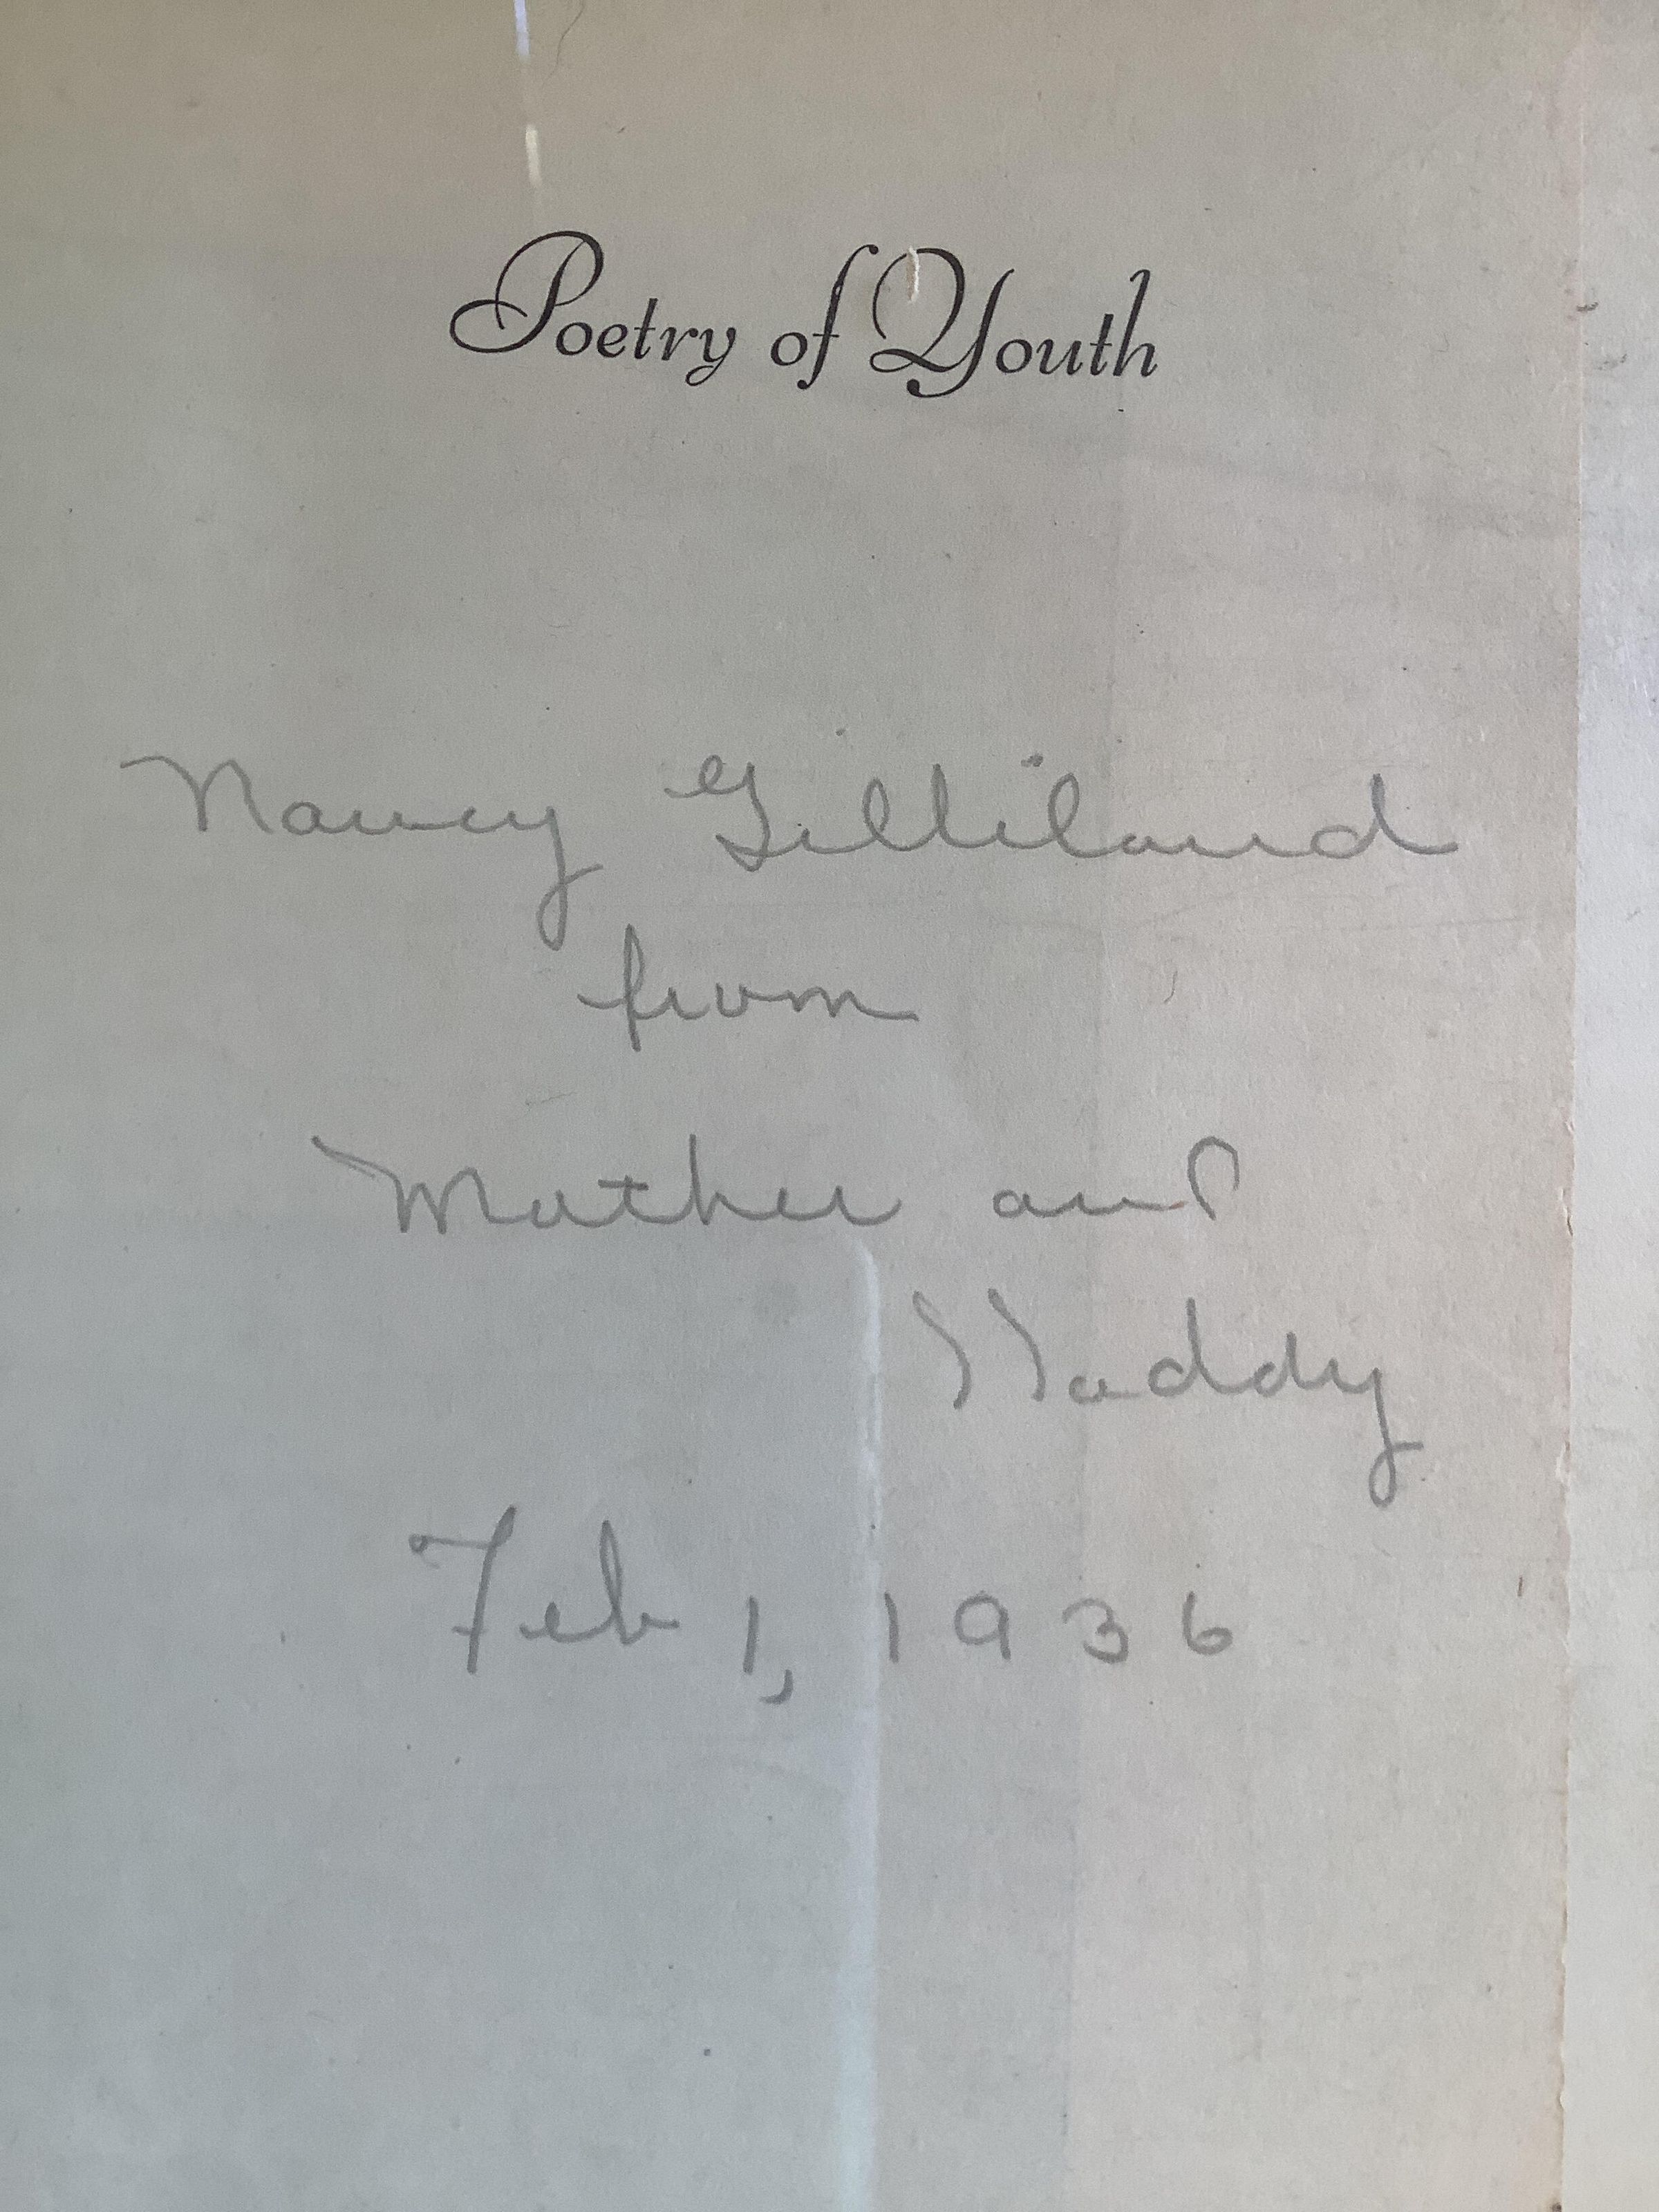 Poetry of Youth
Nancy Gilliland
from
Mother and
Feb 1, 1936